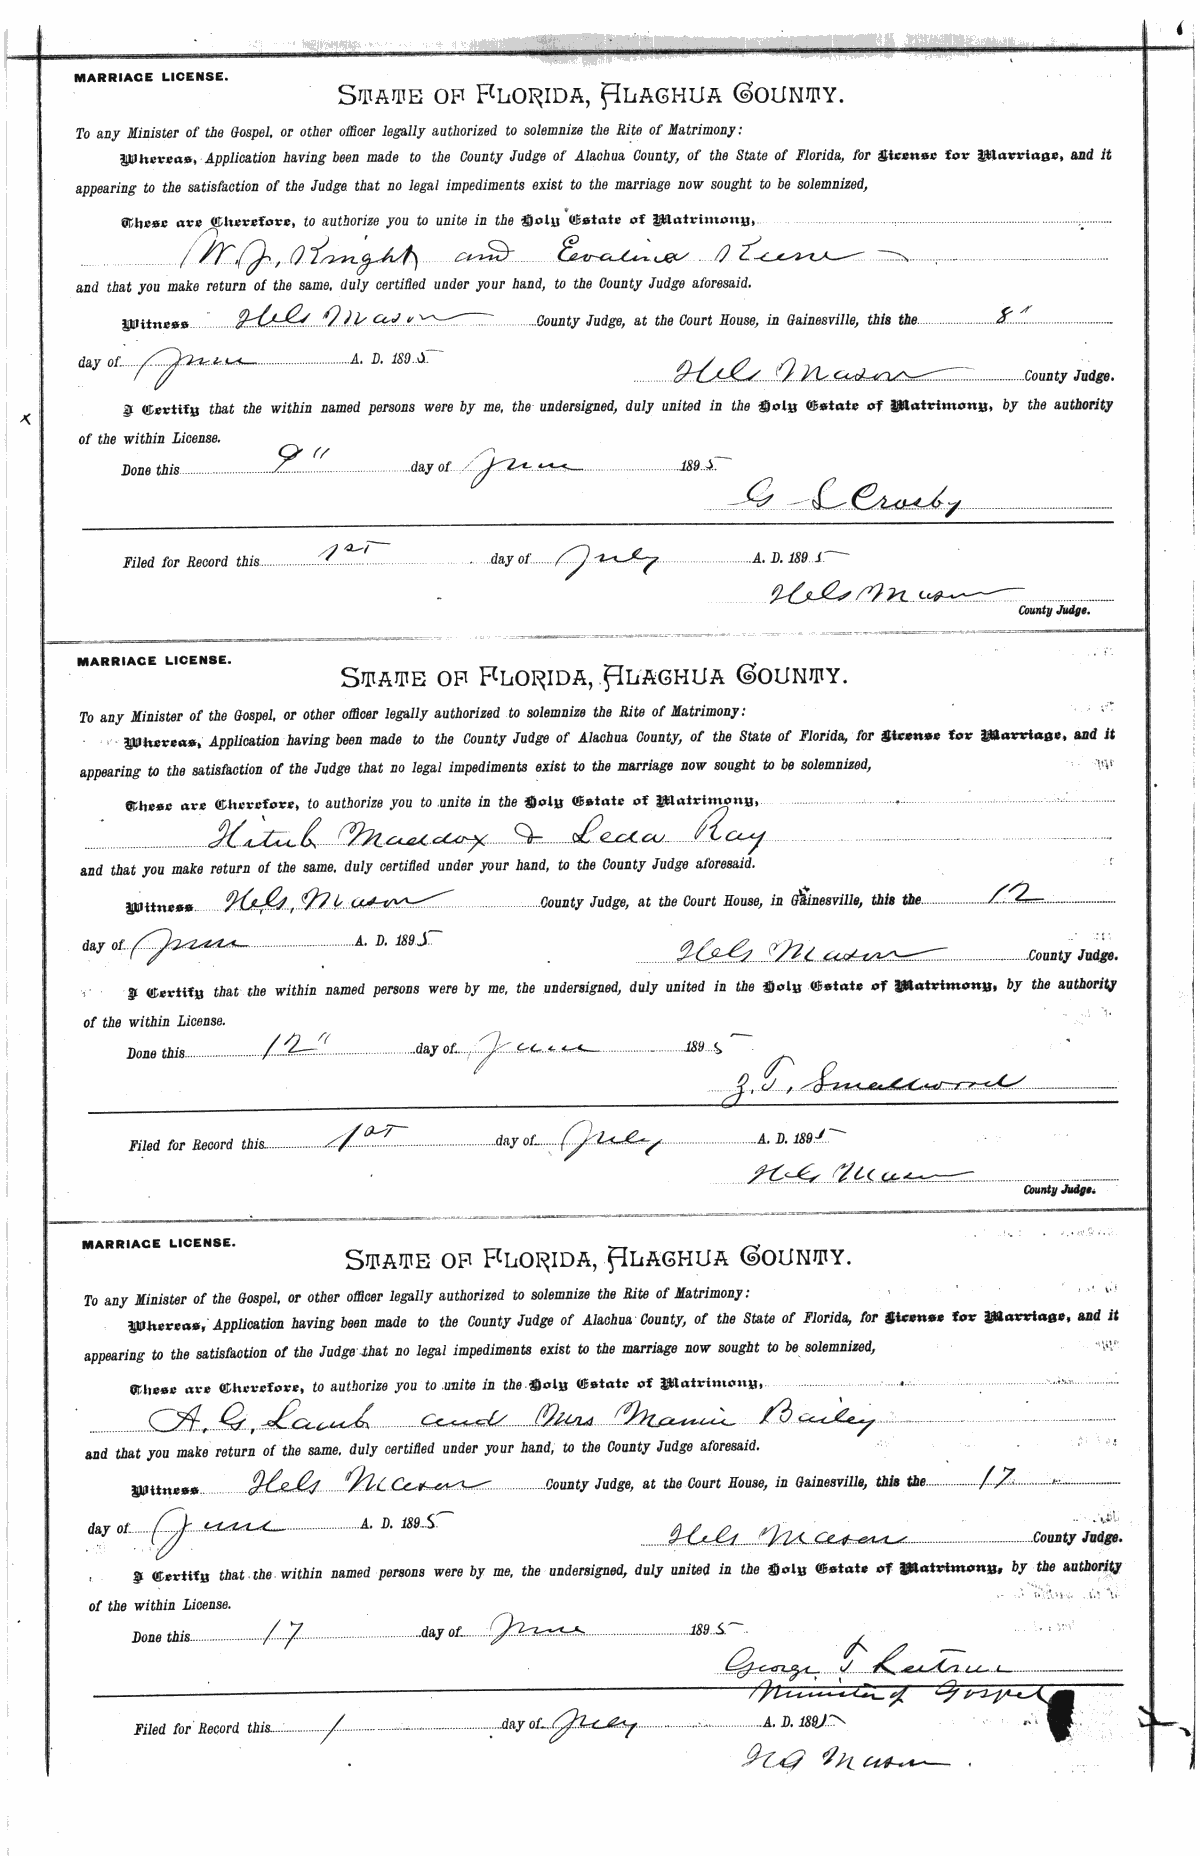 MARRIAGE LICENSE.
STATE OF FLORIDA, ALACHUA COUNTY.
To any Minister of the Gospel, or other officer legally authorized to solemnize the Rite of Matrimony:
Whereas, Application having been made to the County Judge of Alachua County, of the State of Florida, for License for Marriage, and it
appearing to the satisfaction of the Judge that no legal impediments exist to the marriage now sought to be solemnized,
These are Therefore, to authorize you to unite in the Holy Estate of Matrimony,
W. J. Knight and Evalina Keene
and that you make return of the same, duly certified under your hand, to the County Judge aforesaid.
Witness Mason County Judge, at the Court House, in Gainesville, this the 8"
day of June A. D. 1895
Mason County Judge.
I Certify that the within named persons were by me, the undersigned, duly united in the Holy Estate of Matrimony, by the authority
of the within License.
Done this 9" day of June 1895
G S Crosby
Filed for Record this 1st day of July A. D. 1895
Mason
County Judge.
MARRIAGE LICENSE.
STATE OF FLORIDA, ALACHUA COUNTY.
To any Minister of the Gospel, or other officer legally authorized to solemnize the Rite of Matrimony:
Whereas, Application having been made to the County Judge of Alachua County, of the State of Florida, for License for Marriage, and it
appearing to the satisfaction of the Judge that no legal impediments exist to the marriage now sought to be solemnized,
These are Therefore, to authorize you to unite in the Holy Estate of Matrimony,
Maddox & Leda Ray
and that you make return of the same, duly certified under your hand, to the County Judge aforesaid.
Witness Mason County Judge, at the Court House, in Gainesville, this the 12
day of June A. D. 1895
Mason County Judge.
I Certify that the within named persons were by me, the undersigned, duly united in the Holy Estate of Matrimony, by the authority
of the within License.
Done this 12" day of June 1895
Z. T. Smallwood
Filed for Record this 1st day of July A. D. 1895
Mason
County Judge.
MARRIAGE LICENSE.
STATE OF FLORIDA, ALACHUA COUNTY.
To any Minister of the Gospel, or other officer legally authorized to solemnize the Rite of Matrimony:
Whereas, Application having been made to the County Judge of Alachua County, of the State of Florida, for License for Marriage, and it
appearing to the satisfaction of the Judge that no legal impediments exist to the marriage now sought to be solemnized,
These are Therefore, to authorize you to unite in the Holy Estate of Matrimony,
A. G. Lamb and Mrs Mamie Bailey
and that you make return of the same, duly certified under your hand, to the County Judge aforesaid.
Witness Mason County Judge, at the Court House, in Gainesville, this the 17
day of June A. D. 1895
Mason County Judge.
I Certify that the within named persons were by me, the undersigned, duly united in the Holy Estate of Matrimony, by the authority
of the within License.
Done this 17 day of June 1895
George T
Minister of Gospel
Filed for Record this 1 day of July A. D. 1895
Mason